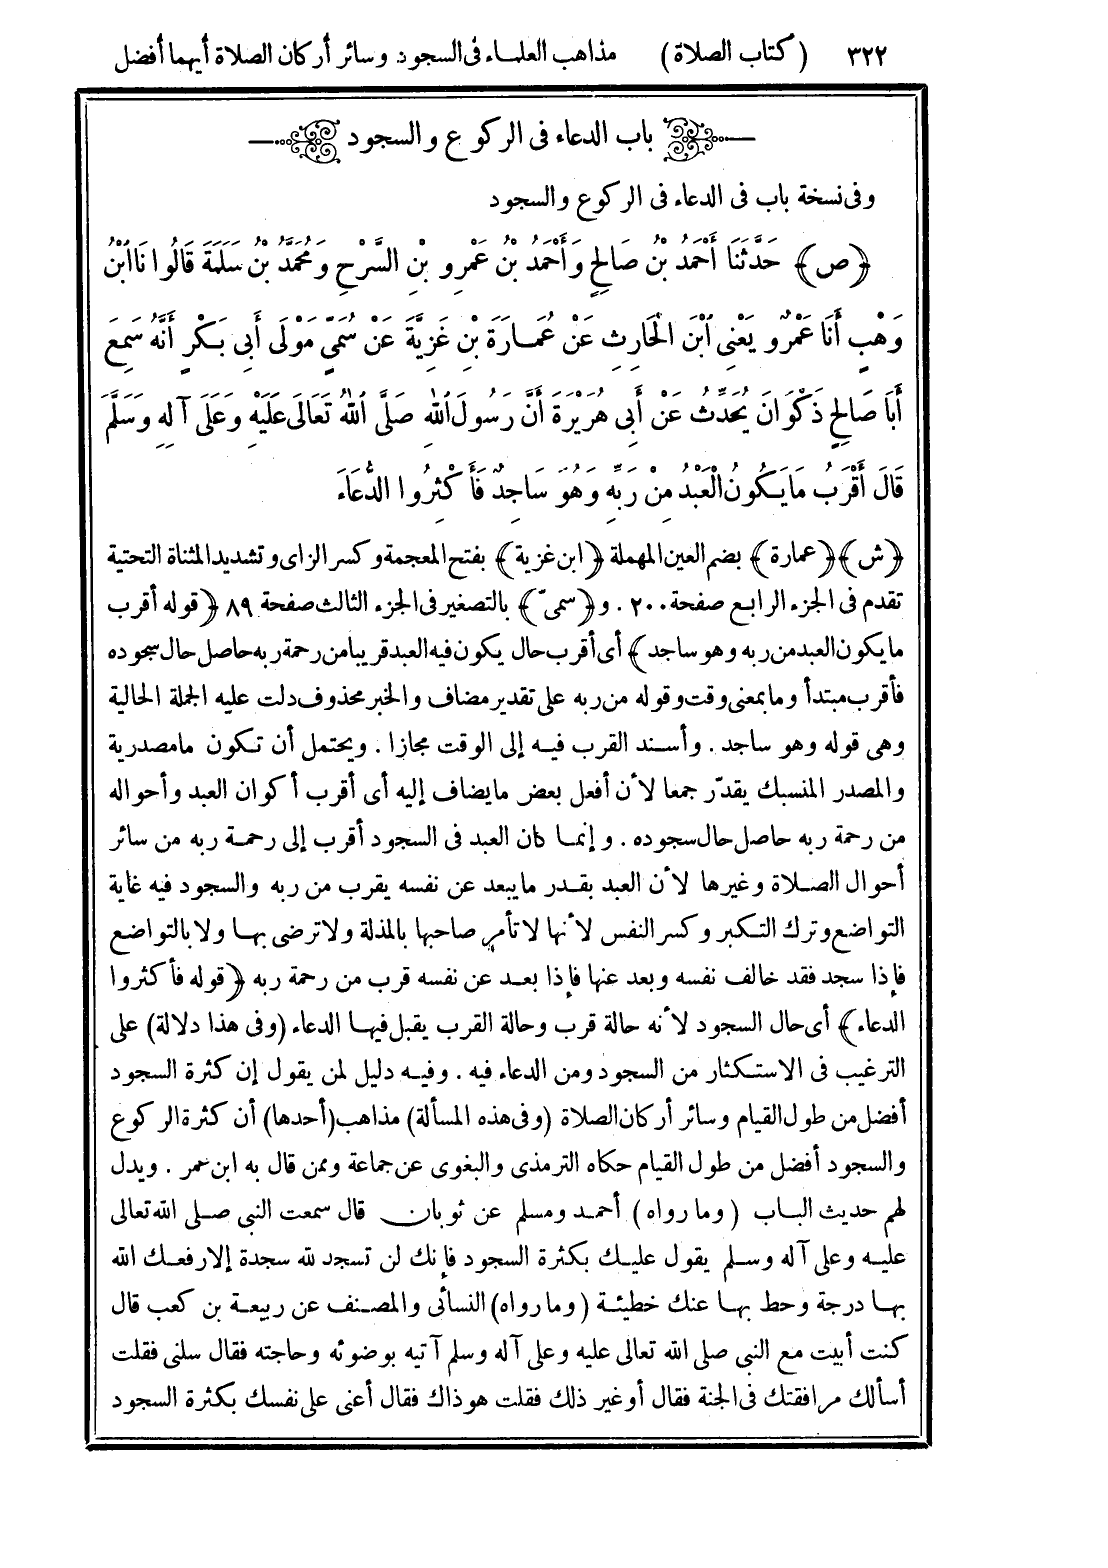 ٣٢٢ (كتاب الصلاة) مذاهب العلماء فى السجود وسائر أركان الصلاة أيهما أفضل
باب الدعاء فى الركوع والسجود
وفى نسخة باب فى الدعاء فى الركوع والسجود
﴿ص﴾ حَدَّثَنَا أَحْمَدُ بْنُ صَالِحٍ وَأَحْمَدُ بْنُ عَمْرِو بْنِ السَّرْحِ وَمُحَمَّدُ بْنُ سَلَمَةَ قَالُوا نَا ابْنُ
وَهْبٍ أَنَا عَمْرٌو يَعْنِى ابْنَ الْحَارِثِ عَنْ عُمَارَةَ بْنِ غَزِيَّةَ عَنْ سُمَىٍّ مَوْلَى أَبِى بَكْرٍ أَنَّهُ سَمِعَ
أَبَا صَالِحٍ ذَكْوَانَ يُحَدِّثُ عَنْ أَبِى هُرَيْرَةَ أَنَّ رَسُولَ اللهِ صَلَّى اللهُ تَعَالَى عَلَيْهِ وَعَلَى آلِهِ وَسَلَّمَ
قَالَ أَقْرَبُ مَا يَكُونُ الْعَبْدُ مِنْ رَبِّهِ وَهُوَ سَاجِدٌ فَأَكْثِرُوا الدُّعَاءَ
﴿ش﴾ ﴿عمارة﴾ بضم العين المهملة ﴿ابن غزية﴾ بفتح المعجمة وكسر الزاى وتشديد المثناة التحتية
تقدم فى الجزء الرابع صفحة ٢٠٠ . و﴿سمىّ﴾ بالتصغير فى الجزء الثالث صفحة ٨٩ ﴿قوله أقرب
ما يكون العبد من ربه وهو ساجد﴾ أى أقرب حال يكون فيه العبد قريبا من رحمة ربه حاصل حال سجوده
فأقرب مبتدأ وما بمعنى وقت وقوله من ربه على تقدير مضاف والخبر محذوف دلت عليه الجملة الحالية
وهى قوله وهو ساجد . وأسند القرب فيه إلى الوقت مجازا . ويحتمل أن تكون ما مصدرية
والمصدر المنسبك يقدّر جمعا لأن أفعل بعض ما يضاف إليه أى أقرب أكوان العبد وأحواله
من رحمة ربه حاصل حال سجوده . وإنما كان العبد فى السجود أقرب إلى رحمة ربه من سائر
أحوال الصلاة وغيرها لأن العبد بقدر ما يبعد عن نفسه يقرب من ربه والسجود فيه غاية
التواضع وترك التكبر وكسر النفس لأنها لا تأمر صاحبها بالمذلة ولا ترضى بها ولا بالتواضع
فإذا سجد فقد خالف نفسه وبعد عنها فإذا بعد عن نفسه قرب من رحمة ربه ﴿قوله فأكثروا
الدعاء﴾ أى حال السجود لأنه حالة قرب وحالة القرب يقبل فيها الدعاء (وفى هذا دلالة) على
الترغيب فى الاستكثار من السجود ومن الدعاء فيه . وفيه دليل لمن يقول إن كثرة السجود
أفضل من طول القيام وسائر أركان الصلاة (وفى هذه المسألة) مذاهب (أحدها) أن كثرة الركوع
والسجود أفضل من طول القيام حكاه الترمذى والبغوى عن جماعة وممن قال به ابن عمر . ويدل
لهم حديث الباب (وما رواه) أحمد ومسلم عن ثوبان قال سمعت النبى صلى الله تعالى
عليه وعلى آله وسلم يقول عليك بكثرة السجود فإنك لن تسجد لله سجدة إلا رفعك الله
بها درجة وحط بها عنك خطيئة (وما رواه) النسائى والمصنف عن ربيعة بن كعب قال
كنت أبيت مع النبى صلى الله تعالى عليه وعلى آله وسلم آتيه بوضوئه وحاجته فقال سلنى فقلت
أسألك مرافقتك فى الجنة فقال أو غير ذلك فقلت هو ذاك فقال أعنى على نفسك بكثرة السجود